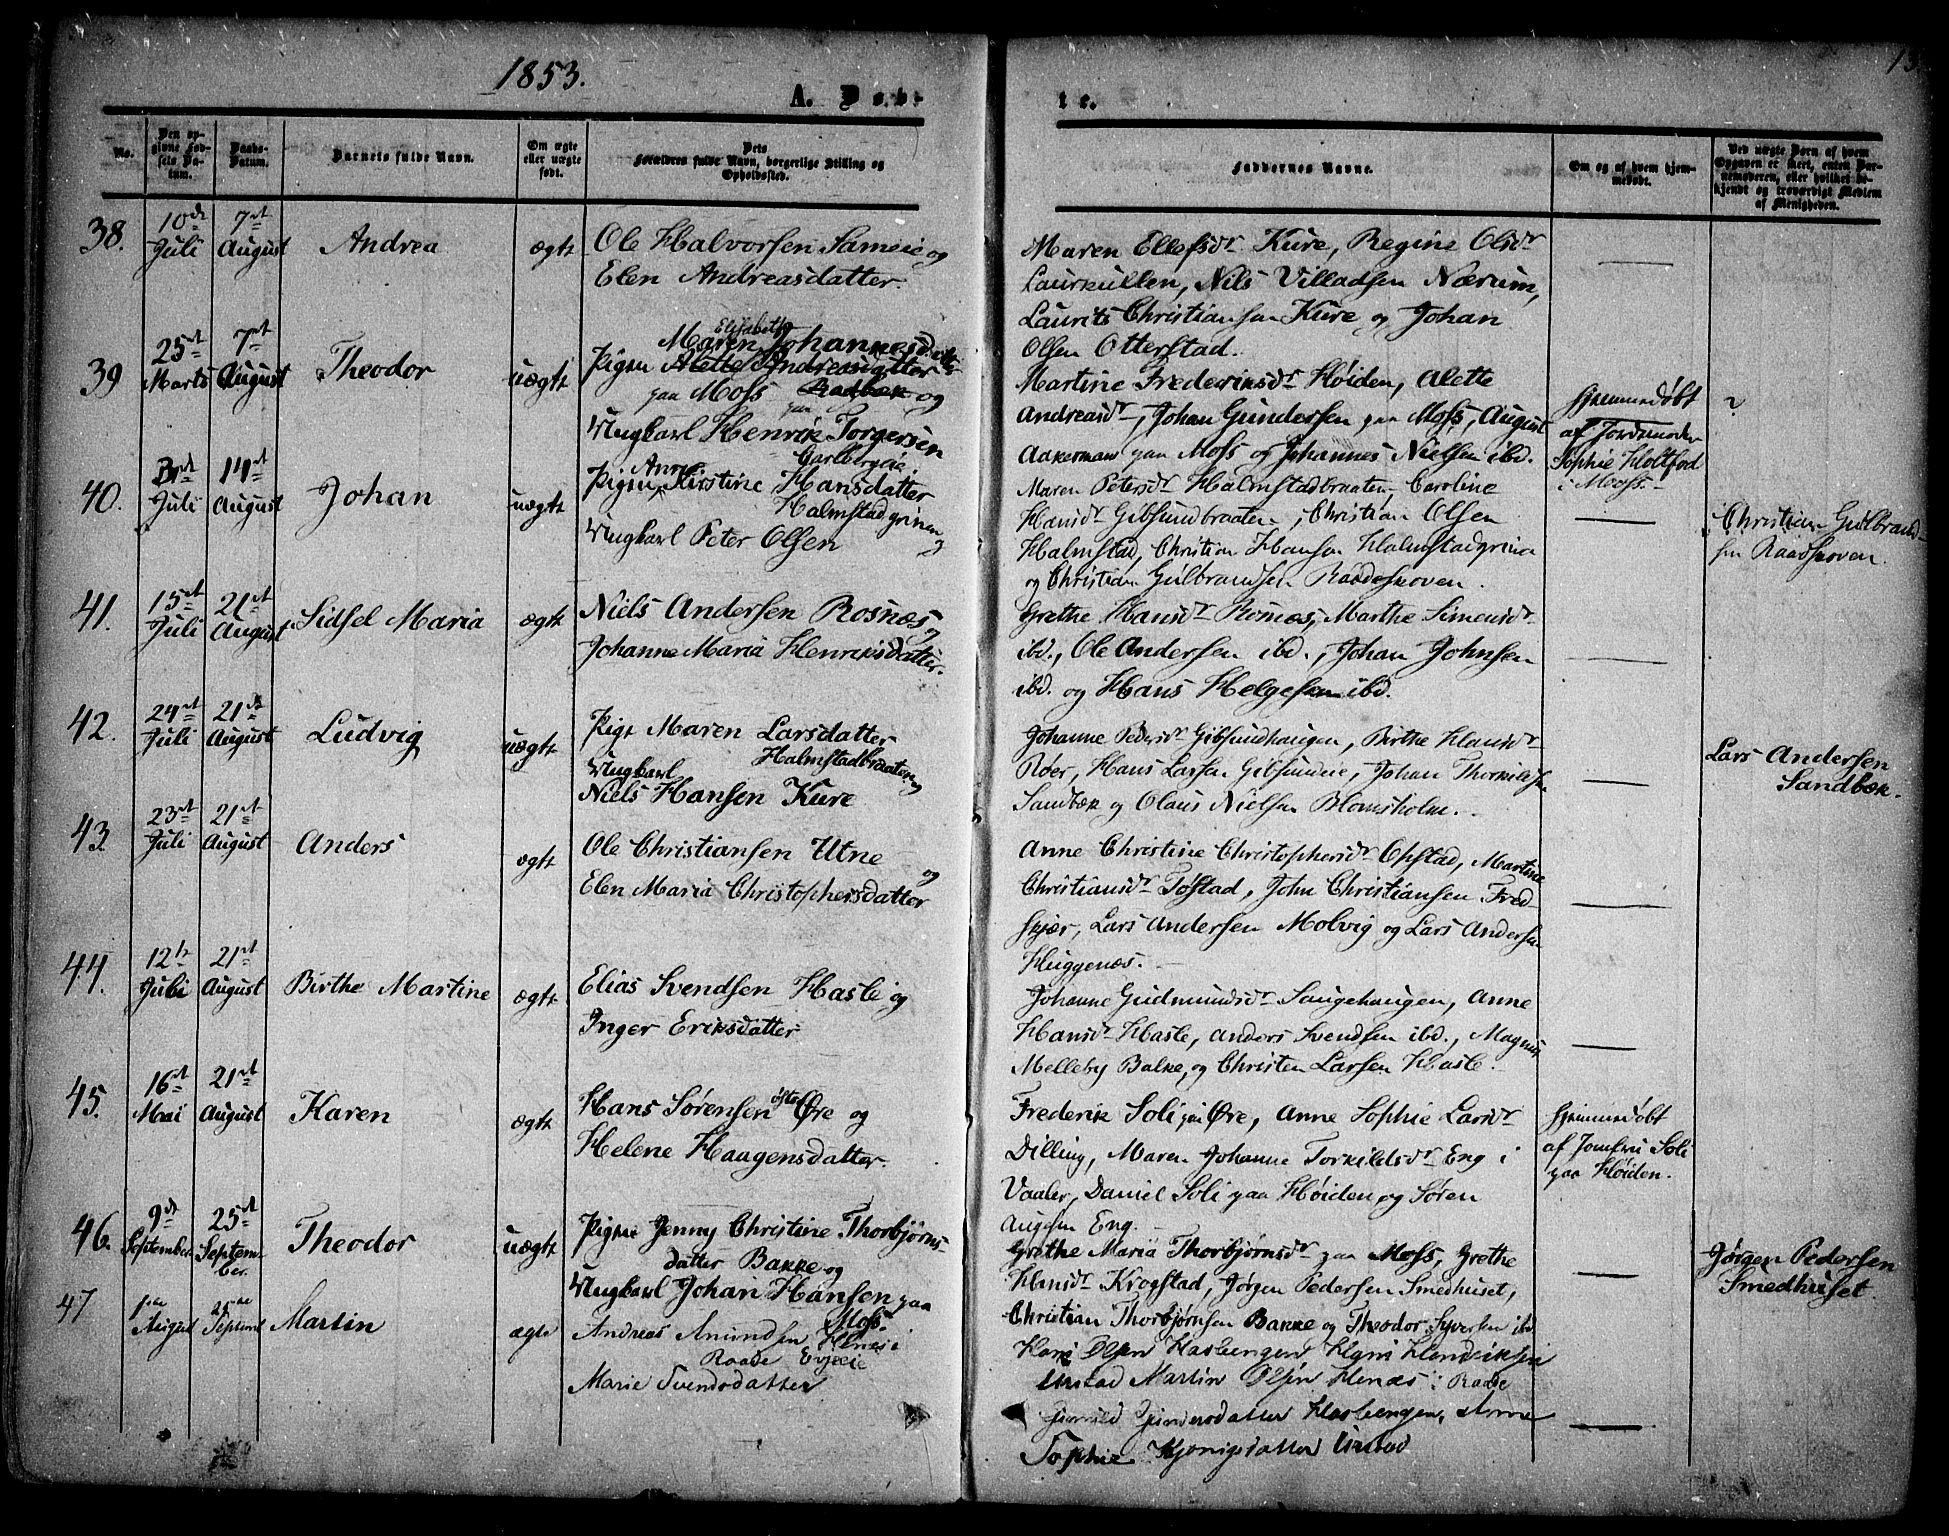 1853.
A. Døb-
te.
No.
Den opgivne Fødsels Datum.
Daabs-Datum.
Barnets fulde Navn.
Om ægte eller uægte født.
Dets Forældres fulde Navn, borgerlige Stilling og Opholdssted.
Faddernes Navne.
Om og af hvem hjemmedøbt.
Ved uægte Børn af hvem Opgaven er skeet, enten Barnemoderen, eller hvilket bekjendt og troværdigt Medlem af Menigheden.
38. 10de Juli 7de August Andrea ægte
Ole Halvorsen Sameie og
Elen Andreasdatter.
Maren Ellefsdr Kure, Regine Olsdr
Laurkullen, Nils Villadsen Nærum,
Laurits Christiansen Kure og Johan
Olsen Otterstad.
39 25de Marts 7de August Theodor uægte
Elisabeth
Maren Johannesdatter
Pigen Alette Andreasdatter
paa Moss Radbæk og
Ungkarl Henrik Torgersen
Carlbergeie.
Martine Frederiksdr Høiden, Alette
Andreasdr, Johan Gundersen paa Moss, August
Aakermann paa Moss og Johannes Nielsen ibd.
Hjemmedøbt
af Jordmoder
Sophie Holtfod
i Moss.
?
40. 3de Juli 14de August Johan uægte
Anne
Pigen Kirstine Hansdatter
Halmstadgrinen og
Ungkarl Peter Olsen
Maren Petersdr Halmstadbraaten, Caroline
Hansdr Gibsundbraaten, Christian Olsen
Halmstad, Christian Hansen Halmstadgrina
og Christian Gulbrandsen Raadeskoven.
Christian Gulbrand-
sen Raadskoven
41. 15de Juli 21de August Sidsel Maria ægte
Niels Andersen Rosnæs og
Johanne Maria Henriksdatter.
Grethe Hansdr Rosnæs, Marthe Simensdr
ibd., Ole Andersen ibd., Johan Johnsen
ibd. og Hans Helgesen ibd.
42. 24de Juli 21de August Ludvig uægte
Pige Maren Larsdatter
Halmstadbraaten og
Ungkarl
Niels Hansen Kure
Johanne Pedersdr Gibsundhaugen, Birthe Hansdr
Røer, Hans Larsen Gibsundeie, Johan Thorkilds.
Sandbæk og Olaus Nielsen Blomsholm.
Lars Andersen
Sandbæk.
43. 23de Juli 21de August Anders ægte
Ole Christiansen Utne og
Elen Maria Christophersdatter
Anne Christine Christophersdr Opstad, Martine
Christiansdr Tostad, John Christiansen Fred-
skjær, Lars Andersen Molvig og Lars Andersen
Huggenæs.
44. 12te Juli 21de August Birthe Martine ægte
Elias Svendsen Hasle og
Inger Eriksdatter
Johanne Gudmundsdr Saugehaugen, Anne
Hansdr Hasle, Anders Svendsen ibd., Magnus
Melleby Balke, og Christen Larsen Hasle.
45. 16de Mai 21de August Karen ægte
Hans Sørensen østre Øre og
Helene Haagensdatter.
Frederik Soli paa Øre, Anne Sophie Larsdr
Dilling, Maren Johanne Torkildsdr Eng i
Vaaler, Daniel Soli paa Høiden og Søren
Augesen Eng.
Hjemmedøbt
af Jomfru Soli
paa Høiden.
46. 9de September 25de September. Theodor uægte
Pigen Jenny Christine Thorbjørns-
datter Bakke og
Ungkarl Johan Hansen paa
Moss.
Grethe Maria Thorbjørnsdr paa Moss, Grethe
Hansdr Krogstad, Jørgen Pedersen Smedhuset,
Christian Thorbjørnsen Bakke og Theodor Syversen ibd.
Jørgen Pedersen
Smedhuset.
47 1ste August Septemb Martin ægte
Andreas Amundsen Henæs i
Raade
Marie Svendsdatter
Hans Olsen Hasbengen Hans Hendriksen
Martin Olsen Henæs i Raade
Gundersdatter Hasbengen, Anne
Sophie